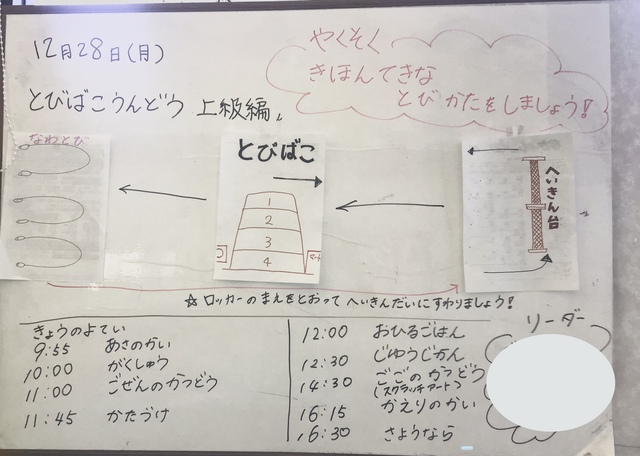 12月28日(月)
やくそく
きほんてきな
とびかたをしましょう!
とびばこうんどう 上級編。
なわとび
とびばこ
1
2
3
4
へいきん台
☆ロッカーのまえをとおってへいきんだいにすわりましょう!
きょうのよてい
9:55 あさのかい
10:00 がくしゅう
11:00 ごぜんのかつどう
11:45 かたづけ
12:00 おひるごはん
12:30 じゆうじかん
14:30 ごごのかつどう
(スクラッチアート)
16:15 かえりのかい
16:30 さようなら
リーダー